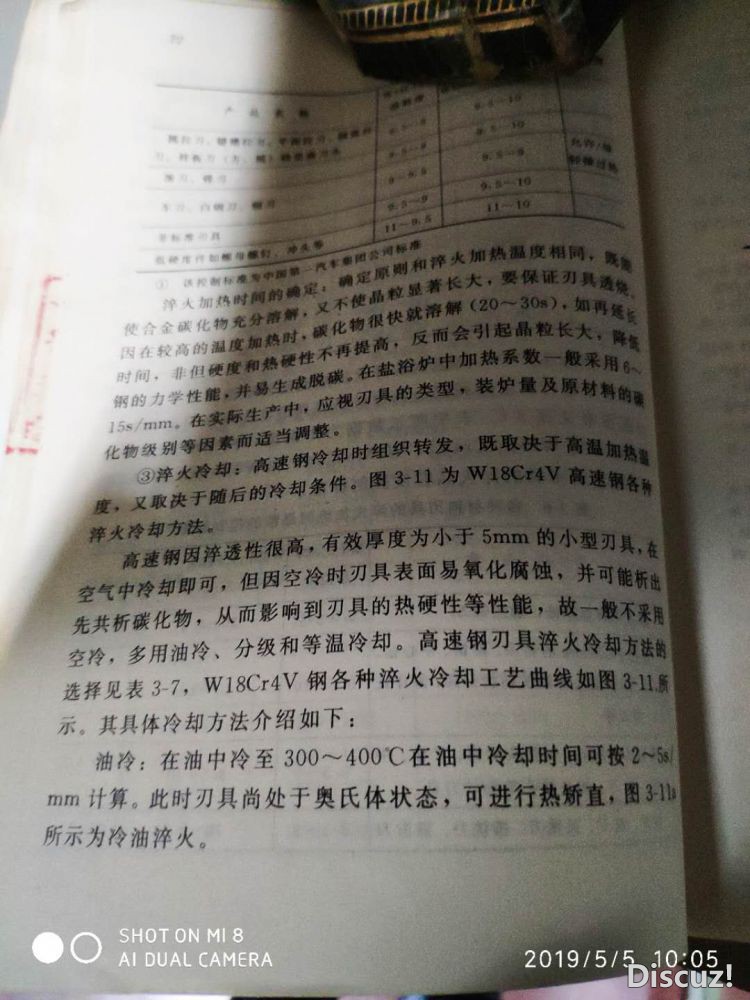 产品名称
9.5~10
9.5~9
9.5~10
9.5~9
9.5~9
9~9.5
9.5~10
车刀、白钢刀、
9.5~9
11~10
非标准刃具
11~9.5
低硬度件如螺母螺钉、冲头等
① 该控制标准为中国第一汽车集团公司标准
淬火加热时间的确定：确定原则和淬火加热温度相同，既能
使合金碳化物充分溶解，又不使晶粒显著长大，要保证刃具透烧。
因在较高的温度加热时，碳化物很快就溶解（20～30s），如再延长
时间，非但硬度和热硬性不再提高，反而会引起晶粒长大，降低
钢的力学性能，并易生成脱碳。在盐浴炉中加热系数一般采用6～
15s/mm。在实际生产中，应视刃具的类型，装炉量及原材料的碳
化物级别等因素而适当调整。
③淬火冷却：高速钢冷却时组织转发，既取决于高温加热温
度，又取决于随后的冷却条件。图 3-11 为 W18Cr4V 高速钢各种
淬火冷却方法。
高速钢因淬透性很高，有效厚度为小于 5mm 的小型刃具，在
空气中冷却即可，但因空冷时刃具表面易氧化腐蚀，并可能析出
先共析碳化物，从而影响到刃具的热硬性等性能，故一般不采用
空冷，多用油冷、分级和等温冷却。高速钢刃具淬火冷却方法的
选择见表 3-7，W18Cr4V 钢各种淬火冷却工艺曲线如图 3-11 所
示。其具体冷却方法介绍如下：
油冷：在油中冷至 300～400℃在油中冷却时间可按 2～5s/
mm 计算。此时刃具尚处于奥氏体状态，可进行热矫直，图 3-11a
所示为冷油淬火。
SHOT ON MI 8
AI DUAL CAMERA
2019/5/5 10:05
Discuz!